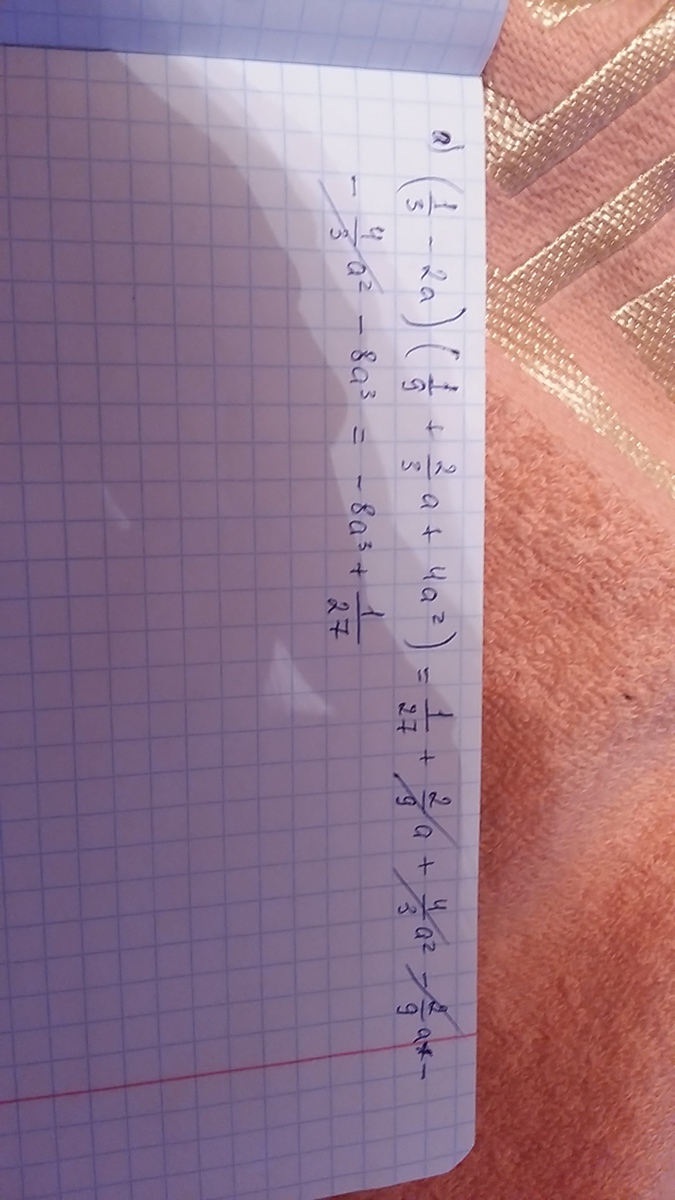 а) (1/3 - 2a)(1/9 + 2/3 a + 4a²) = 1/27 + 2/9 a + 4/3 a² - 2/9 a -
- 4/3 a² - 8a³ = - 8a³ + 1/27